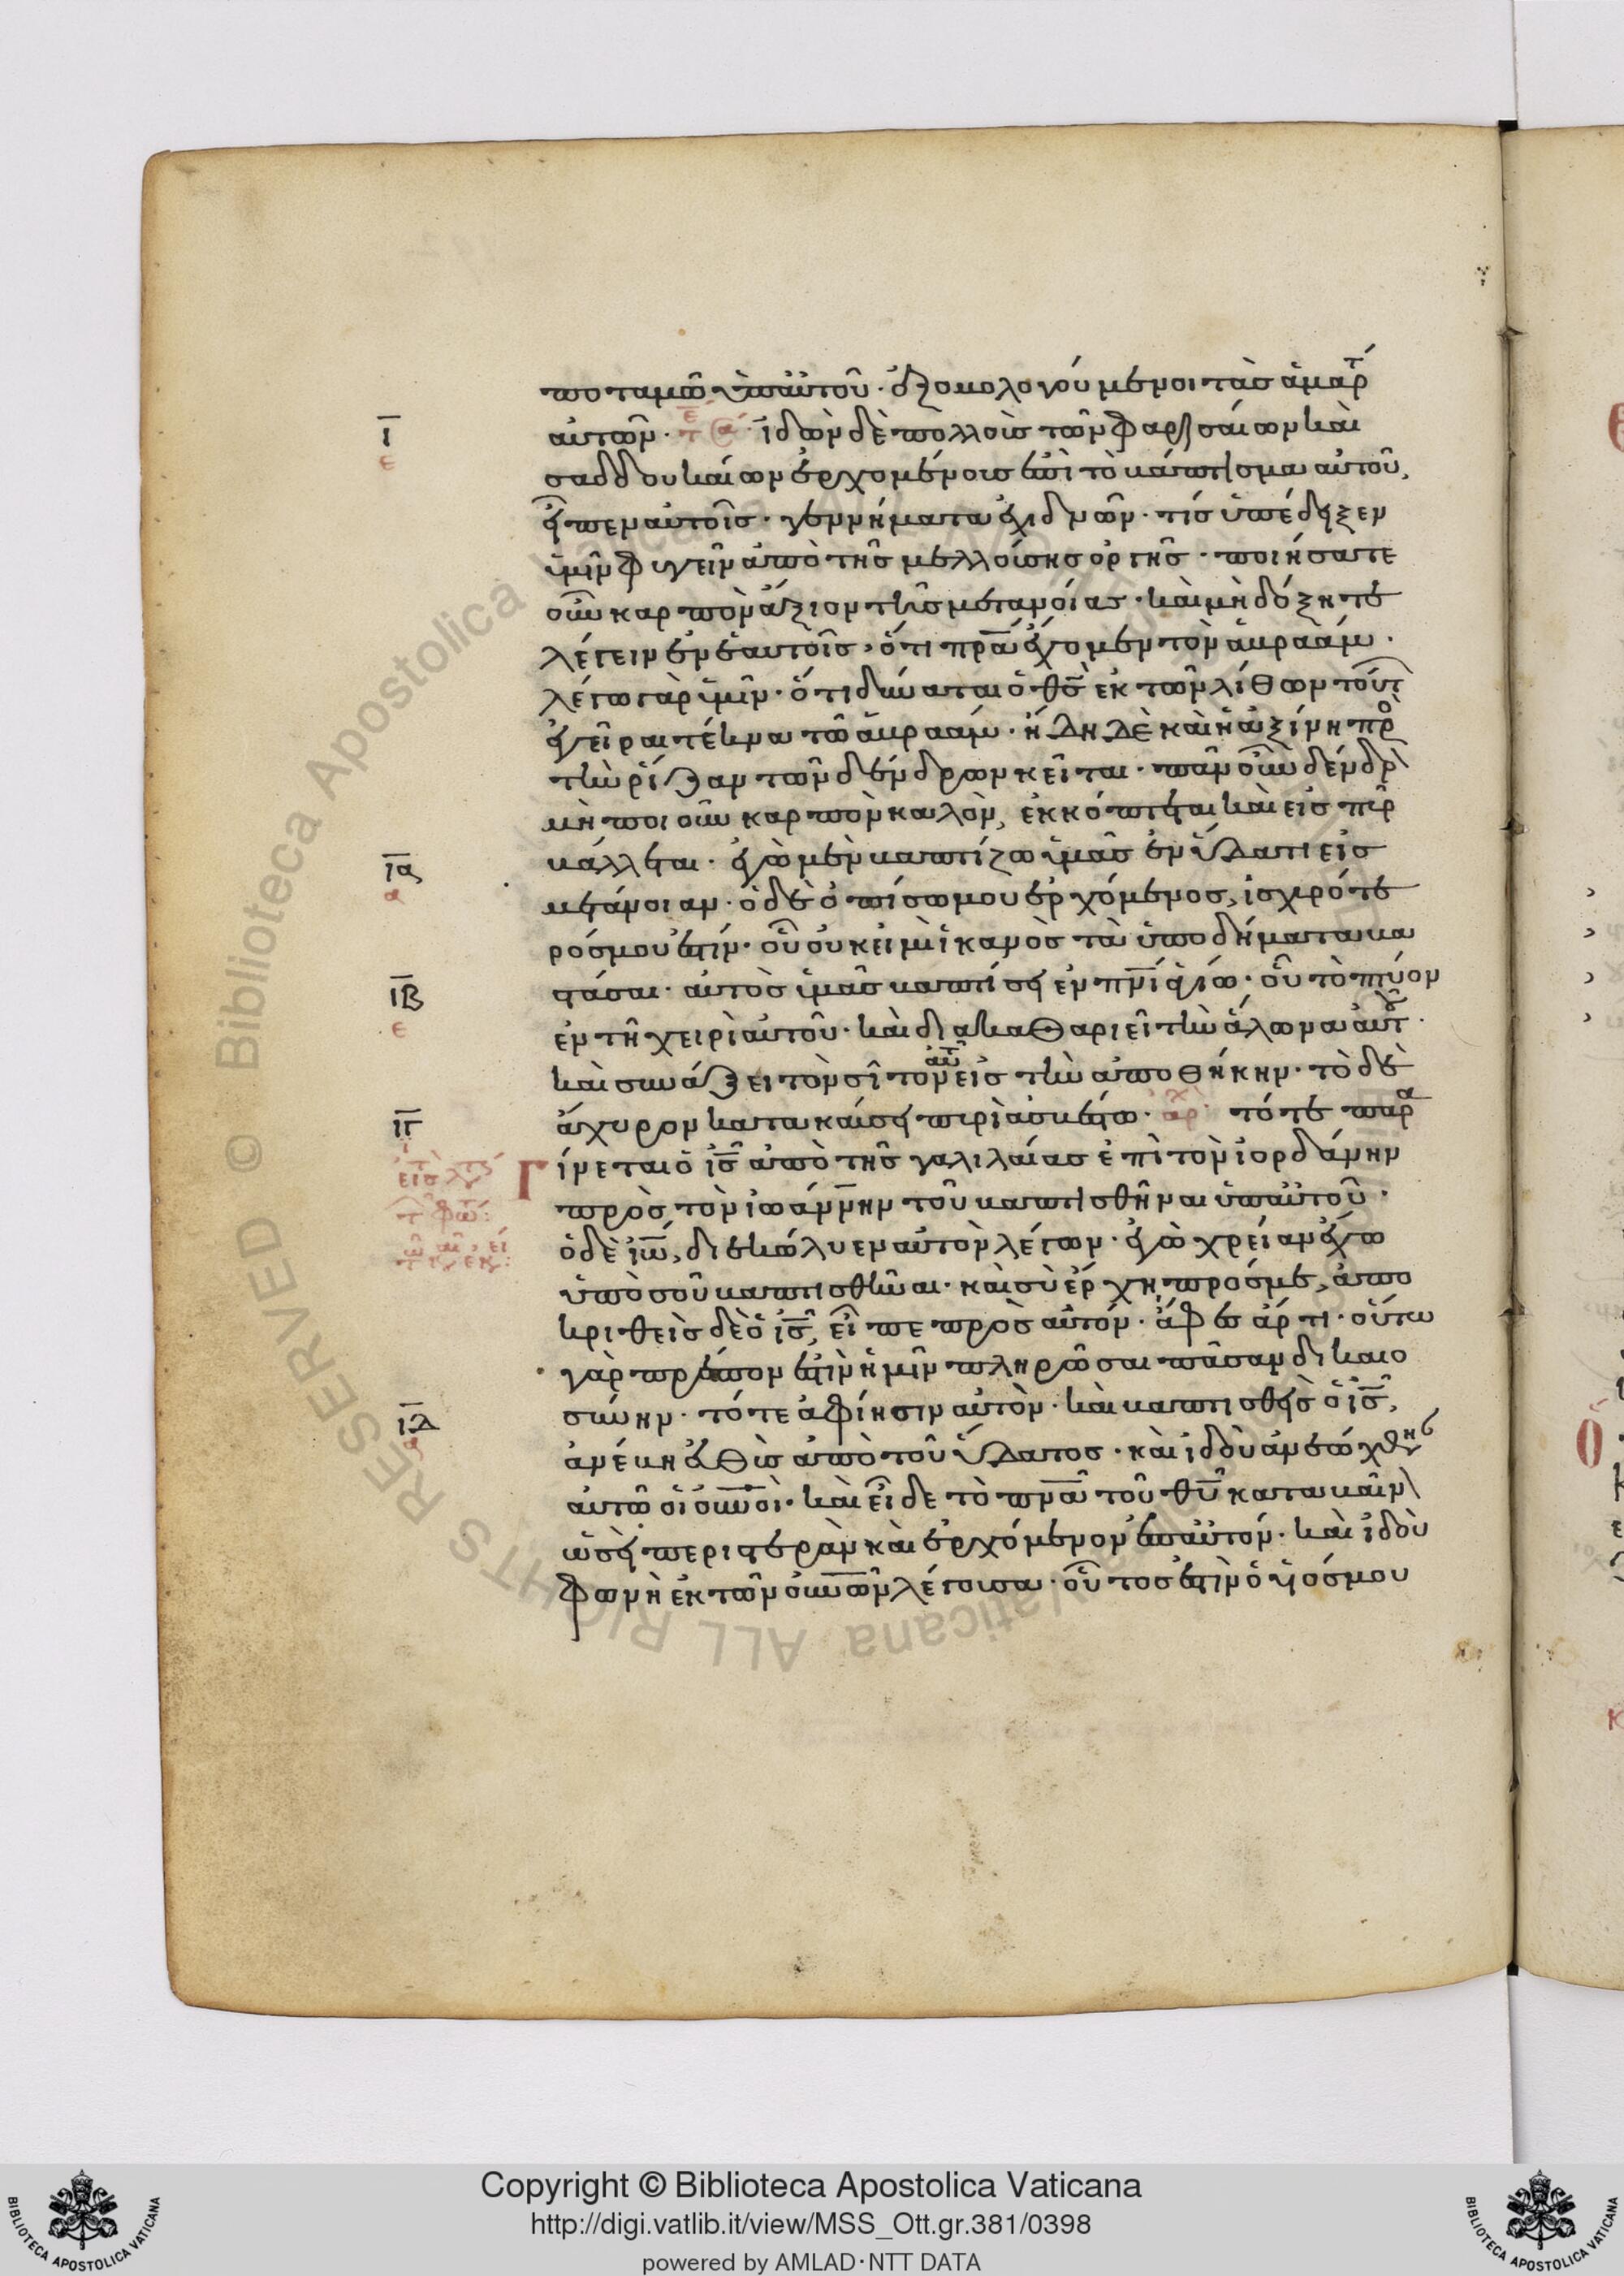 ποταμῶ ὑπ' αὐτοῦ · ἐξομολογούμενοι τὰς ἁμαρτ
αὐτῶν · ἰδὼν δὲ πολλοὺς τῶν φαρισαίων καὶ
σαδδουκαίων ἐρχομένους ἐπὶ τὸ βάπτισμα αὐτοῦ,
εἶπεν αὐτοῖς · γεννήματα ἐχιδνῶν · τίς ὑπέδειξεν
ὑμῖν φυγεῖν ἀπὸ τῆς μελλούσης ὀργῆς · ποιήσατε
οὖν καρπὸν ἄξιον τῆς μετανοίας · καὶ μὴ δόξητε
λέγειν ἐν ἑαυτοῖς · ὅτι πρα ἔχομεν τὸν ἀβραάμ ·
λέγω γὰρ ὑμῖν · ὅτι δύναται ὁ θς ἐκ τῶν λίθων τούτ
ἐγεῖραι τέκνα τῶ ἀβραάμ · ἤδη δὲ καὶ ἡ ἀξίνη πρὸ
τὴν ῥίζαν τῶν δένδρων κεῖται · πᾶν οὖν δένδρ
μὴ ποιοῦν καρπὸν καλὸν, ἐκκόπτεται καὶ εἰς πῦρ
βάλλεται · ἐγὼ μὲν βαπτίζω ὑμᾶς ἐν ὕδατι εἰς
μετάνοιαν · ὁ δὲ ὀπίσω μου ἐρχόμενος, ἰσχυρότε
ρός μου ἐστίν · οὗ οὐκ εἰμὶ ἱκανὸς τὰ ὑποδήματα βα
στάσαι · αὐτὸς ὑμᾶς βαπτίσει ἐν πνι ἁγίω · οὗ τὸ πτύον
ἐν τῆ χειρὶ αὐτοῦ · καὶ διακαθαριεῖ τὴν ἅλωνα αὐτ
καὶ συνάξει τὸν σῖτον αὐτ εἰς τὴν ἀποθήκην · τὸ δὲ
ἄχυρον κατακαύσει πυρὶ ἀσβέστω · ἀρχ τότε παρα
Γίνεται ὁ ις ἀπὸ τῆς γαλιλαίας ἐπὶ τὸν ἰορδάνην
πρὸς τὸν ἰωάννην τοῦ βαπτισθῆναι ὑπ' αὐτοῦ ·
ὁ δὲ ἰω, διεκώλυεν αὐτὸν λέγων · ἐγὼ χρείαν ἔχω
ὑπὸ σοῦ βαπτισθῆναι · καὶ σὺ ἔρχη πρός με, ἀπο
κριθεὶς δὲ ὁ ις, εἶπε πρὸς αὐτόν · ἄφες ἄρτι · οὕτω
γὰρ πρέπον ἐστὶν ἡμῖν πληρῶσαι πᾶσαν δικαιο
σύνην · τότε ἀφίησιν αὐτὸν · καὶ βαπτισθεὶς ὁ ις,
ἀνέβη εὐθὺς ἀπὸ τοῦ ὕδατος · καὶ ἰδοὺ ἀνεώχθησ
αὐτῶ οἱ οὐνοὶ · καὶ εἶδε τὸ πνα τοῦ θυ καταβαῖν
ὡσεὶ περιστερὰν καὶ ἐρχόμενον ἐπ' αὐτόν · καὶ ἰδοὺ
φωνὴ ἐκ τῶν οὐνῶν λέγουσα · οὗτός ἐστιν ὁ υἱός μου
Ι
ε
ΙΑ
α
ΙΒ
ε
ΙΓ
ΙΔ
α
© Biblioteca Apostolica Vaticana ALL RIGHTS RESERVED
Copyright © Biblioteca Apostolica Vaticana
http://digi.vatlib.it/view/MSS_Ott.gr.381/0398
powered by AMLAD·NTT DATA
BIBLIOTECA APOSTOLICA VATICANA
BIBLIOTECA APOSTOLICA VATICANA